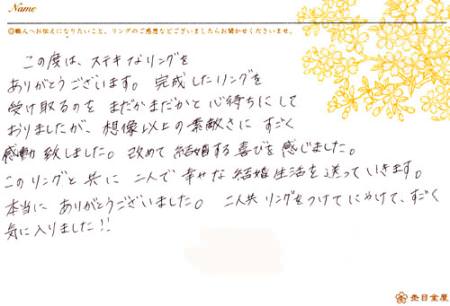 Name
◎職人へお伝えになりたいこと、リングのご感想などございましたらお聞かせくださいませ。
この度は、ステキなリングを
ありがとうございます。完成したリングを
受け取るのを まだかまだかと心待ちにして
おりましたが、想像以上の素敵さに すごく
感動致しました。改めて結婚する喜びを感じました。
このリングと共に 二人で幸せな結婚生活を送っていきます。
本当に ありがとうございました。 二人共リングをつけてにやけて、すごく
気に入りました!!
杢目金屋